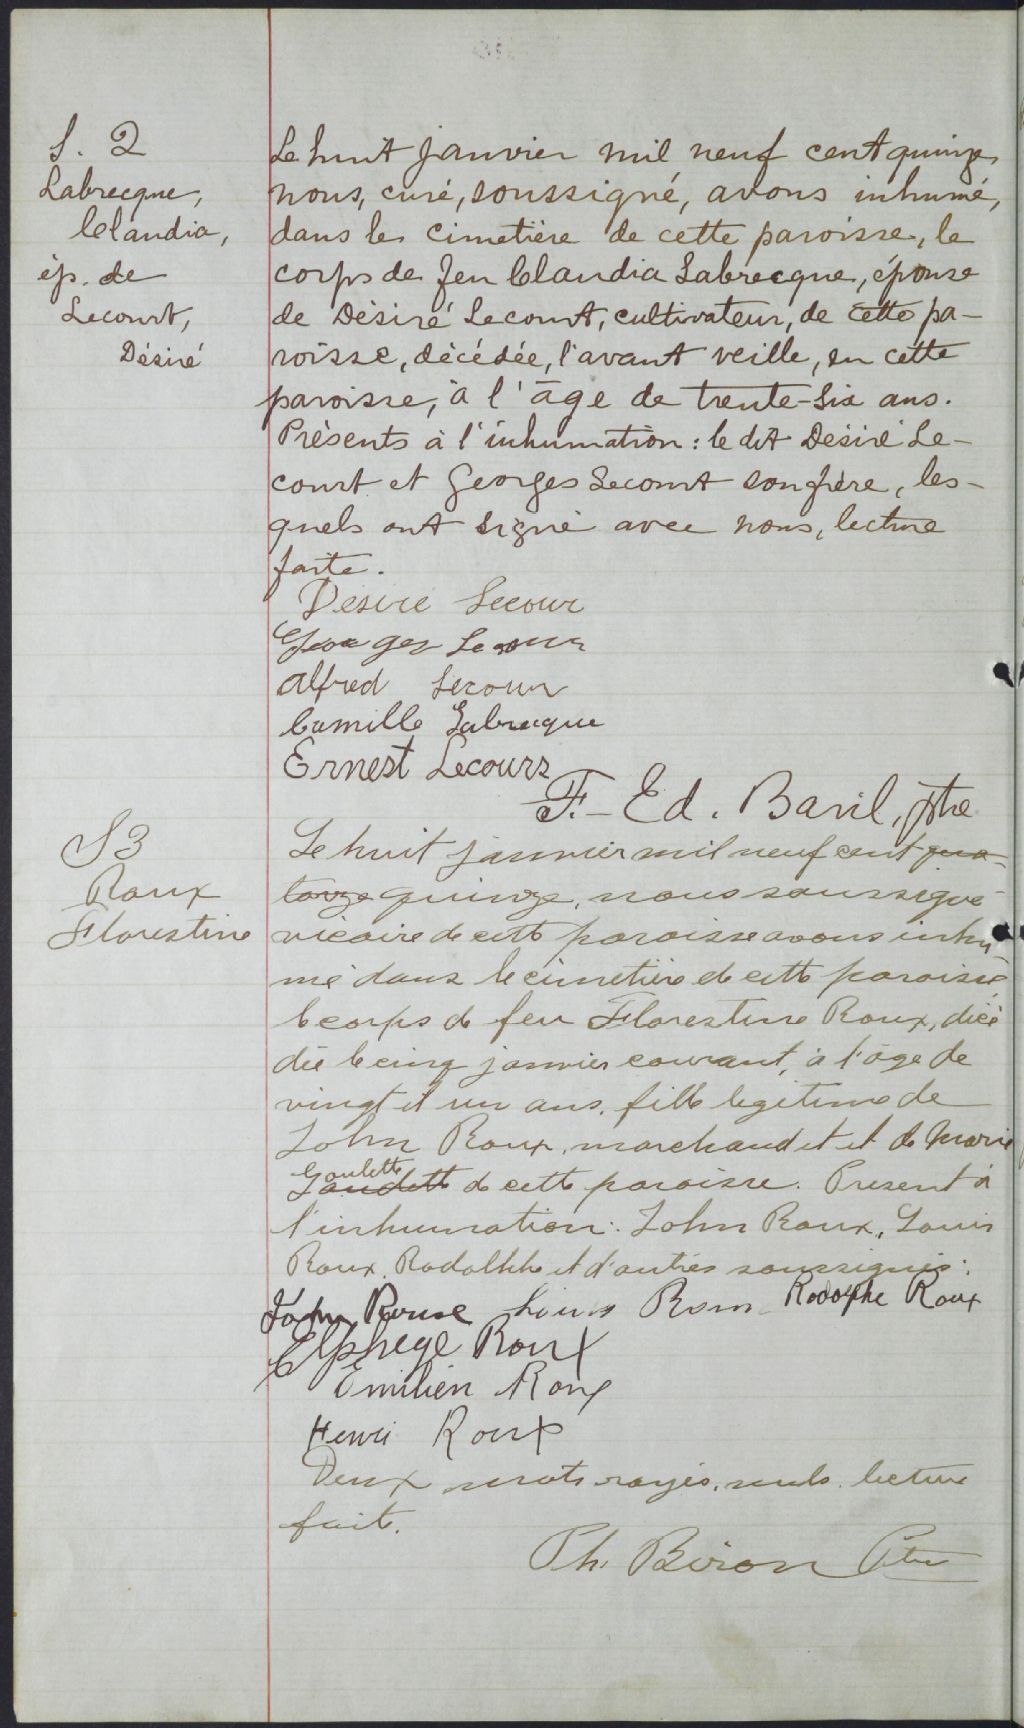 S. 2
Labrecque,
Claudia,
ép. de
Lecourt,
Désiré
Le huit janvier mil neuf cent quinze,
nous, curé, soussigné, avons inhumé,
dans le cimetière de cette paroisse, le
corps de feu Claudia Labrecque, épouse
de Désiré Lecourt, cultivateur, de cette pa-
roisse, décédée, l'avant veille, en cette
paroisse, à l'âge de trente-six ans.
Présents à l'inhumation : le dit Désiré Le-
court et Georges Lecourt son frère, les-
quels ont signé avec nous, lecture
faite.
Desire Lecour
Georges Lecour
Alfred Lecour
Camille Labrecque
Ernest Lecours
F.-Ed. Baril, ptre
S3
Roux
Florestine
Le huit janvier mil neuf cent qua-
torze quinze, nous soussigné
vicaire de cette paroisse avons inhu
mé dans le cimetière de cette paroisse
le corps de feu Florestine Roux, décé
dée le cinq janvier courant, à l'âge de
vingt et un ans, fille légitime de
John Roux, marchand et et de Marie
Goulette
Gaudette de cette paroisse. Present à
l'inhumation : John Roux, Louis
Roux, Rodolphe et d'autres soussignés.
John Rouse Louis Roux Rodolphe Roux
Elphege Roux
Emilien Roux
Henri Roux
Deux mots rayés, nuls. lecture
faite.
Ph. Biron Ptre